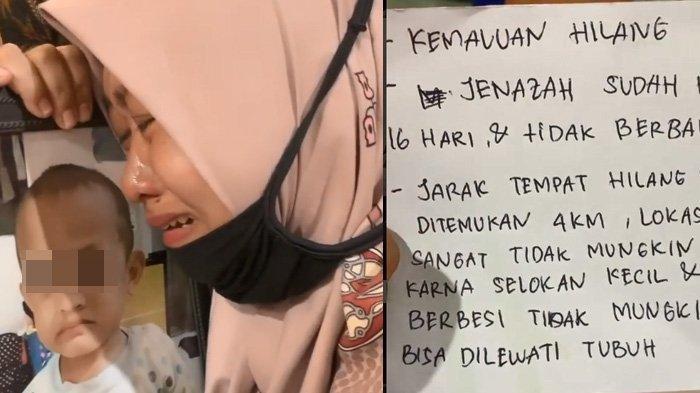 - KEMALUAN HILANG
- JENAZAH SUDAH
16 HARI, & TIDAK
- JARAK TEMPAT HILANG
DITEMUKAN 4KM,
SANGAT TIDAK MUNGKIN
KARNA SELOKAN KECIL &
BERBESI TIDAK
BISA DILEWATI TUBUH